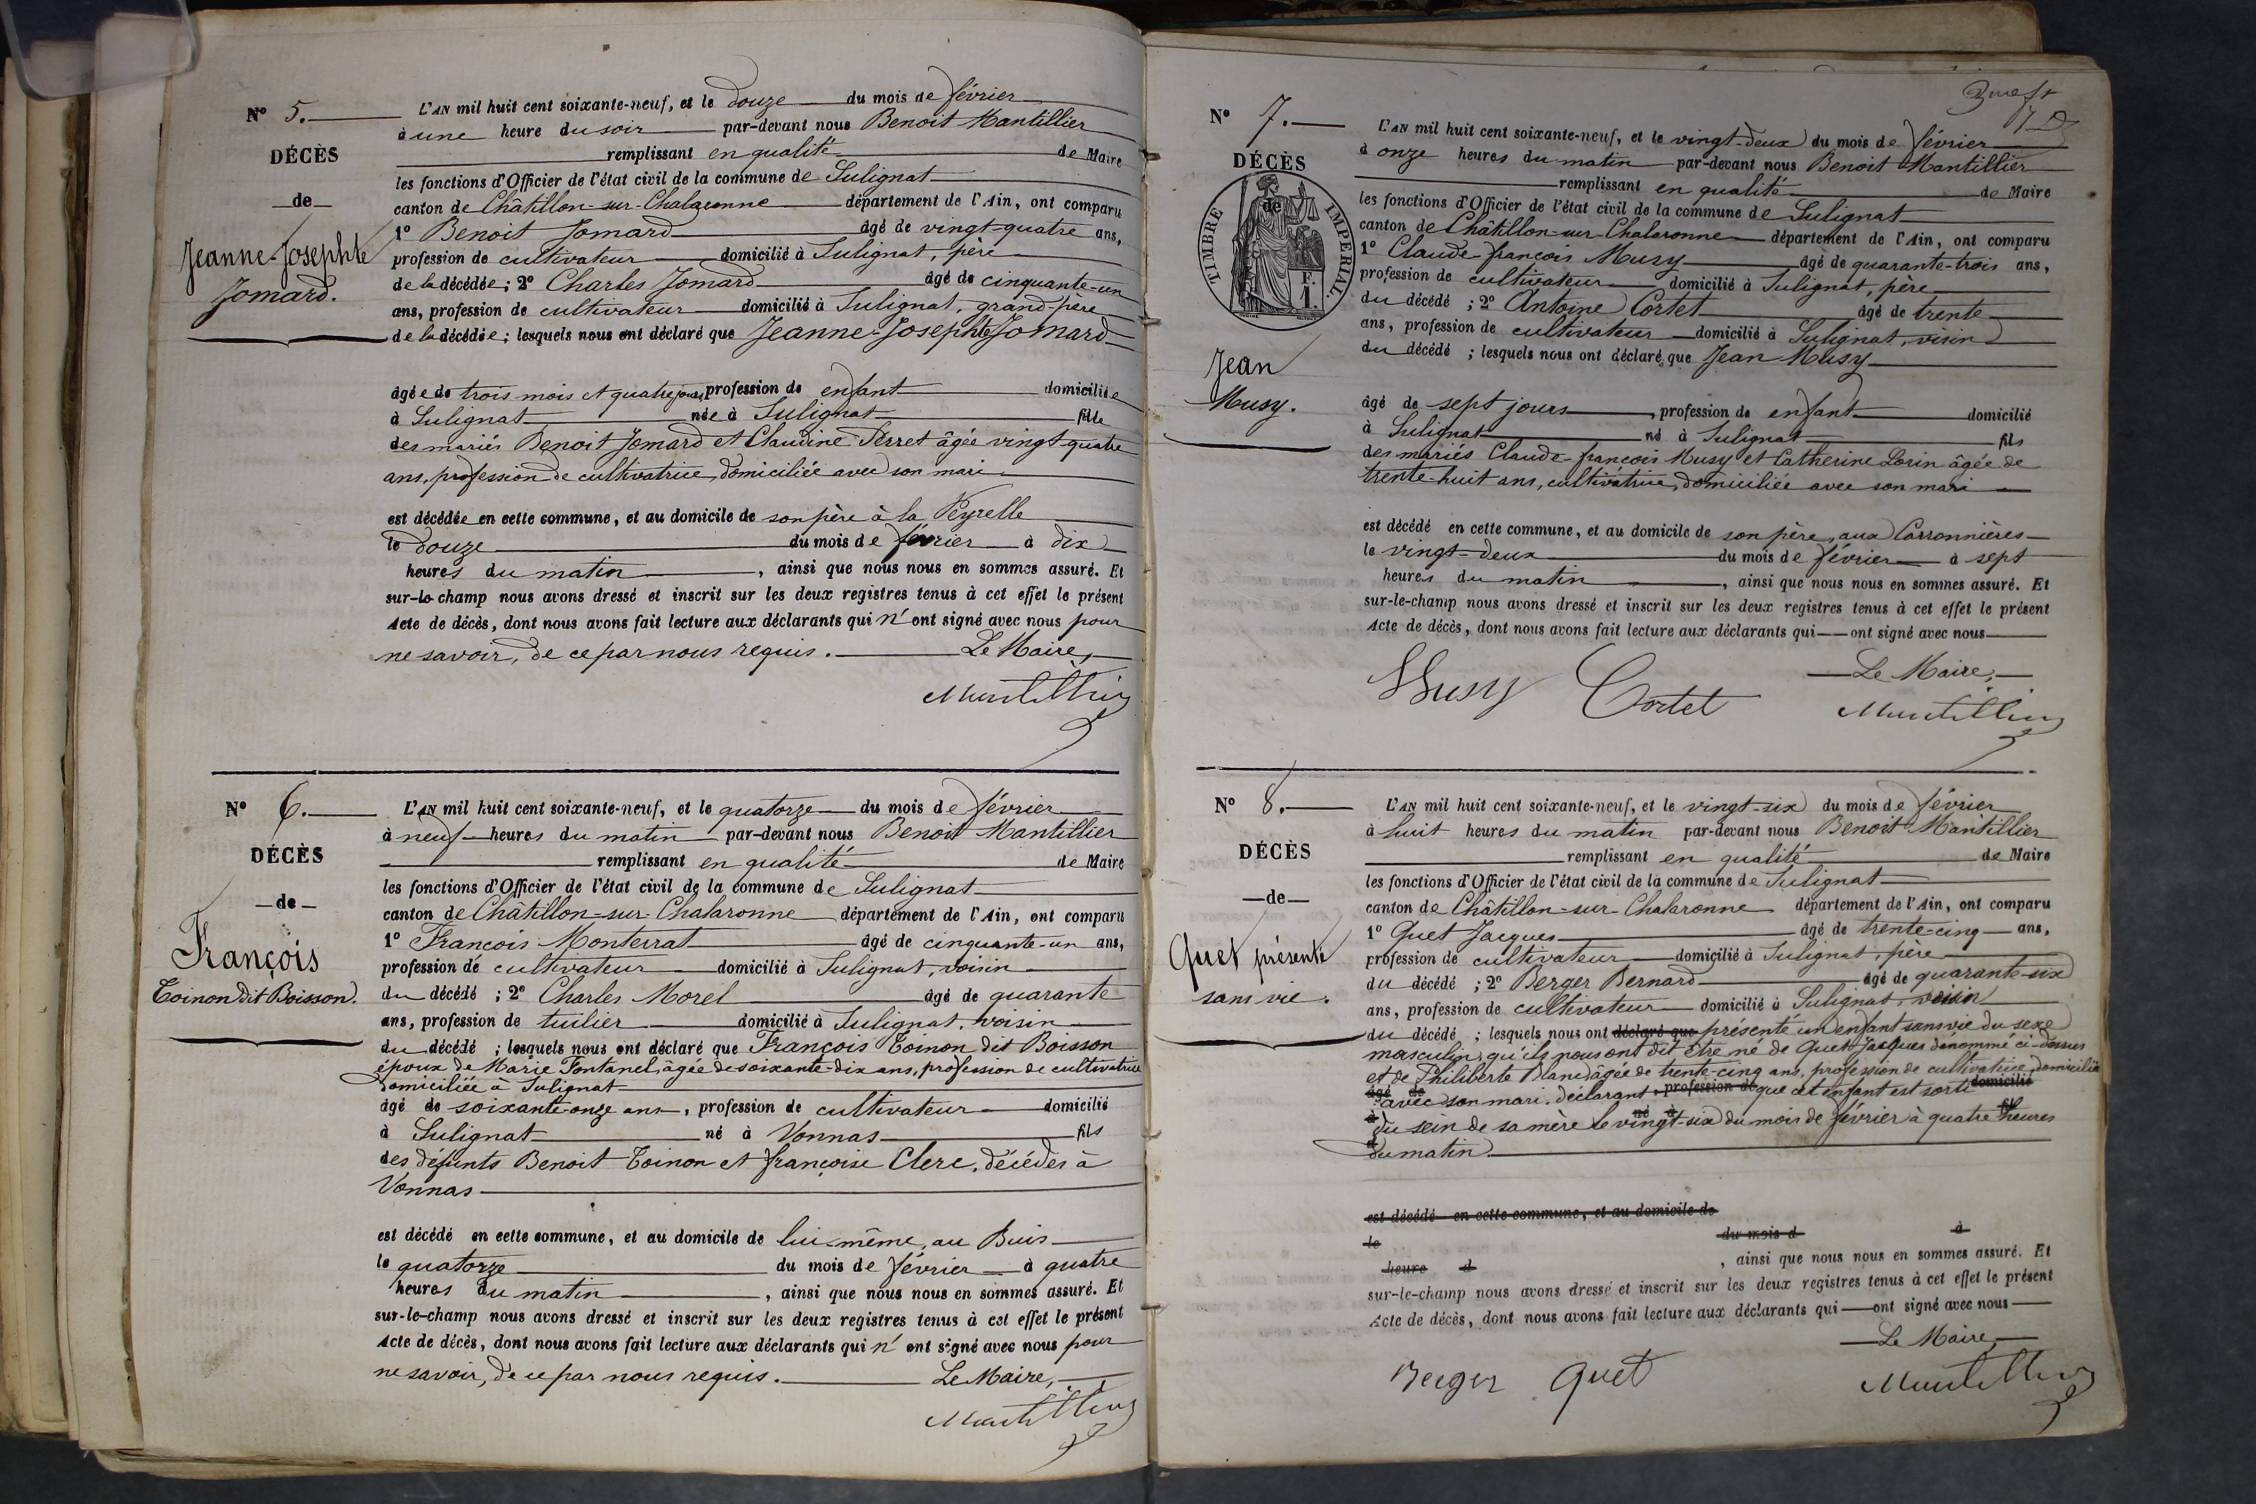 N° 5.
DÉCÈS
de
Jeanne-Josephte
Jomard.
L'AN mil huit cent soixante-neuf, et le douze du mois de février
à une heure du soir par-devant nous Benoit Mantillier
remplissant en qualité de Maire
les fonctions d'Officier de l'état civil de la commune de Sulignat
canton de Châtillon-sur-Chalaronne département de l'Ain, ont comparu
1° Benoit Jomard âgé de vingt-quatre ans,
profession de cultivateur domicilié à Sulignat, père
de la décédée ; 2° Charles Jomard âgé de cinquante-un
ans, profession de cultivateur domicilié à Sulignat, grand-père
de la décédée ; lesquels nous ont déclaré que Jeanne-Josephte Jomard
âgée de trois mois et quatre jours, profession de enfant domiciliée
à Sulignat née à Sulignat fille
des mariés Benoit Jomard et Claudine Perret âgée vingt-quatre
ans, profession de cultivatrice, domiciliée avec son mari
est décédée en cette commune, et au domicile de son père à la Peyrelle
le douze du mois de février à dix
heures du matin, ainsi que nous nous en sommes assuré. Et
sur-le-champ nous avons dressé et inscrit sur les deux registres tenus à cet effet le présent
Acte de décès, dont nous avons fait lecture aux déclarants qui n'ont signé avec nous pour
ne savoir, de ce par nous requis. Le Maire,
Mantillier
N° 6.
DÉCÈS
de
François
Toinon dit Boisson.
L'AN mil huit cent soixante-neuf, et le quatorze du mois de février
à neuf heures du matin par-devant nous Benoit Mantillier
remplissant en qualité de Maire
les fonctions d'Officier de l'état civil de la commune de Sulignat
canton de Châtillon-sur-Chalaronne département de l'Ain, ont comparu
1° François Monterrat âgé de cinquante-un ans,
profession de cultivateur domicilié à Sulignat, voisin
du décédé ; 2° Charles Morel âgé de quarante
ans, profession de tuilier domicilié à Sulignat, voisin
du décédé ; lesquels nous ont déclaré que François Toinon dit Boisson
époux de Marie Fontanel, âgée de soixante-dix ans, profession de cultivatrice
domiciliée à Sulignat
âgé de soixante-onze ans, profession de cultivateur domicilié
à Sulignat né à Vonnas fils
des défunts Benoit Toinon et françoise Clerc, décédés à
Vonnas
est décédé en cette commune, et au domicile de lui-même, au Buis
le quatorze du mois de février à quatre
heures du matin, ainsi que nous nous en sommes assuré. Et
sur-le-champ nous avons dressé et inscrit sur les deux registres tenus à cet effet le présent
Acte de décès, dont nous avons fait lecture aux déclarants qui n'ont signé avec nous pour
ne savoir, de ce par nous requis. Le Maire,
Mantillier
N° 7.
DÉCÈS
de
TIMBRE IMPERIAL.
F.
1.
Jean
Musy.
L'AN mil huit cent soixante-neuf, et le vingt-deux du mois de février
à onze heures du matin par-devant nous Benoit Mantillier
remplissant en qualité de Maire
les fonctions d'Officier de l'état civil de la commune de Sulignat
canton de Châtillon-sur-Chalaronne département de l'Ain, ont comparu
1° Claude-françois Musy âgé de quarante-trois ans,
profession de cultivateur domicilié à Sulignat, père
du décédé ; 2° Antoine Cortet âgé de trente
ans, profession de cultivateur domicilié à Sulignat, voisin
du décédé ; lesquels nous ont déclaré que Jean Musy
âgé de sept jours, profession de enfant domicilié
à Sulignat né à Sulignat fils
des mariés Claude-françois Musy et Catherine Lorin âgée de
trente-huit ans, cultivatrice, domiciliée avec son mari
est décédé en cette commune, et au domicile de son père, aux Carronnières
le vingt-deux du mois de février à sept
heures du matin, ainsi que nous nous en sommes assuré. Et
sur-le-champ nous avons dressé et inscrit sur les deux registres tenus à cet effet le présent
Acte de décès, dont nous avons fait lecture aux déclarants qui ont signé avec nous
Le Maire,
Musy Cortet Mantillier
N° 8.
DÉCÈS
de
Quet présenté
sans vie.
L'AN mil huit cent soixante-neuf, et le vingt-six du mois de février
à huit heures du matin par-devant nous Benoit Mantillier
remplissant en qualité de Maire
les fonctions d'Officier de l'état civil de la commune de Sulignat
canton de Châtillon-sur-Chalaronne département de l'Ain, ont comparu
1° Quet Jacques âgé de trente-cinq ans,
profession de cultivateur domicilié à Sulignat, père
du décédé ; 2° Berger Bernard âgé de quarante-six
ans, profession de cultivateur domicilié à Sulignat, voisin
du décédé ; lesquels nous ont déclaré que présenté un enfant sans vie du sexe
masculin, qu'ils nous ont dit être né de Quet Jacques dénommé ci-dessus
et de Philiberte Bland âgée de trente-cinq ans, profession de cultivatrice, domiciliée
âgé de avec son mari. déclarant, profession de que cet enfant est sorti domicilié
à du sein de sa mère né à le vingt-six du mois de février à quatre fil heures
du matin.
est décédé en cette commune, et au domicile de
le du mois d à
heure d , ainsi que nous nous en sommes assuré. Et
sur-le-champ nous avons dressé et inscrit sur les deux registres tenus à cet effet le présent
Acte de décès, dont nous avons fait lecture aux déclarants qui ont signé avec nous
Le Maire,
Berger Quet Mantillier